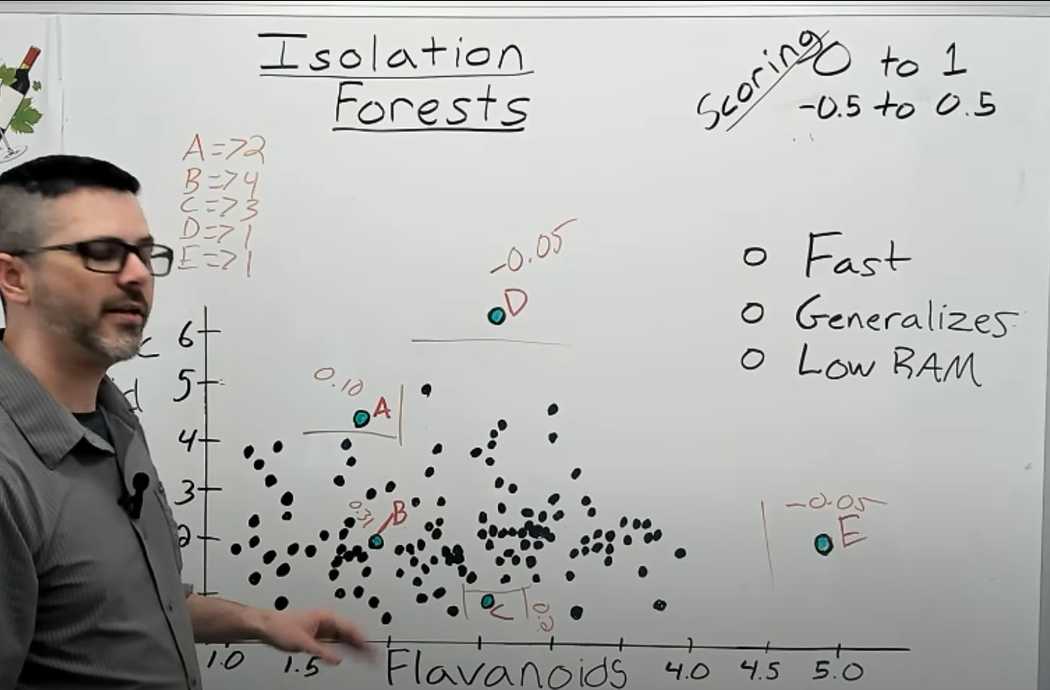 Isolation
Forests
Scoring
0 to 1
-0.5 to 0.5
A=>2
B=>4
C=>3
D=>1
E=>1
-0.05
D
Fast
Generalizes
Low RAM
6
5
4
3
2
0.10
A
0.31
B
C
-0.05
E
1.0 1.5 Flavanoids 4.0 4.5 5.0